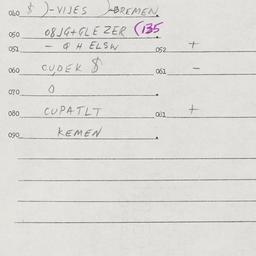 040 $ )-VIJES )-BREMEN
050 O8JG+GLEZER (135
051 - Φ H ELSW 052 +
060 CUDEK $ 061 -
070 O
080 CUPATLT 081 +
090 KEMEN